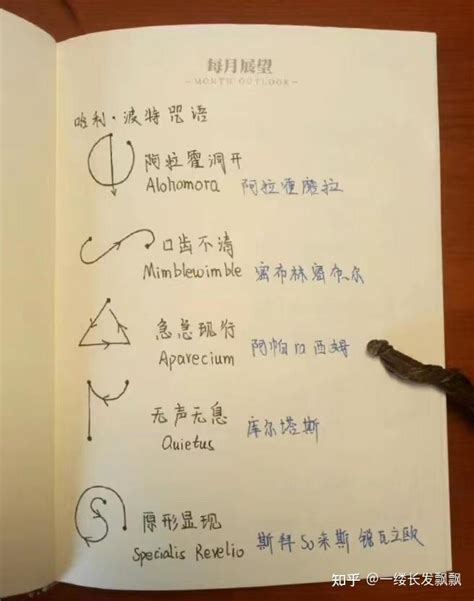 每月展望
— MONTH OUTLOOK —
哈利·波特咒语
阿拉霍洞开
Alohomora 阿拉霍魔拉
口齿不清
Mimblewimble 密布林密布尔
急急现行
Aparecium 阿帕ra西姆
无声无息
Quietus 库尔塔斯
原形显现
Specialis Revelio 斯拜So来斯 锐瓦立欧
知乎 @一缕长发飘飘